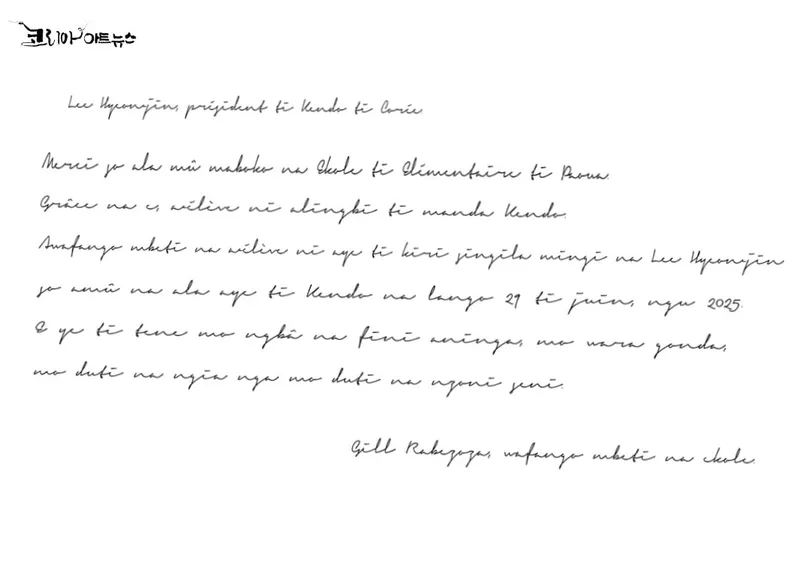 코리아아트뉴스
Lee Hyeonjin, président ti Kendo ti Corée
Merci so ala mû maboko na Ekole ti Elémentaire ti Paoua
Grâce na e, aélève ni alingbi ti manda Kendo.
Awafango mbeti na aélève ni aye ti kiri singila mingi na Lee Hyeonjin
so amû na ala aye ti Kendo na lango 29 ti juin, ngu 2025.
E ye ti tene mo ngbâ na fini aninga, mo wara gonda,
mo duti na ngia nga mo duti na nzoni seni.
Gill Rabezoza, wafango mbeti na ekole.